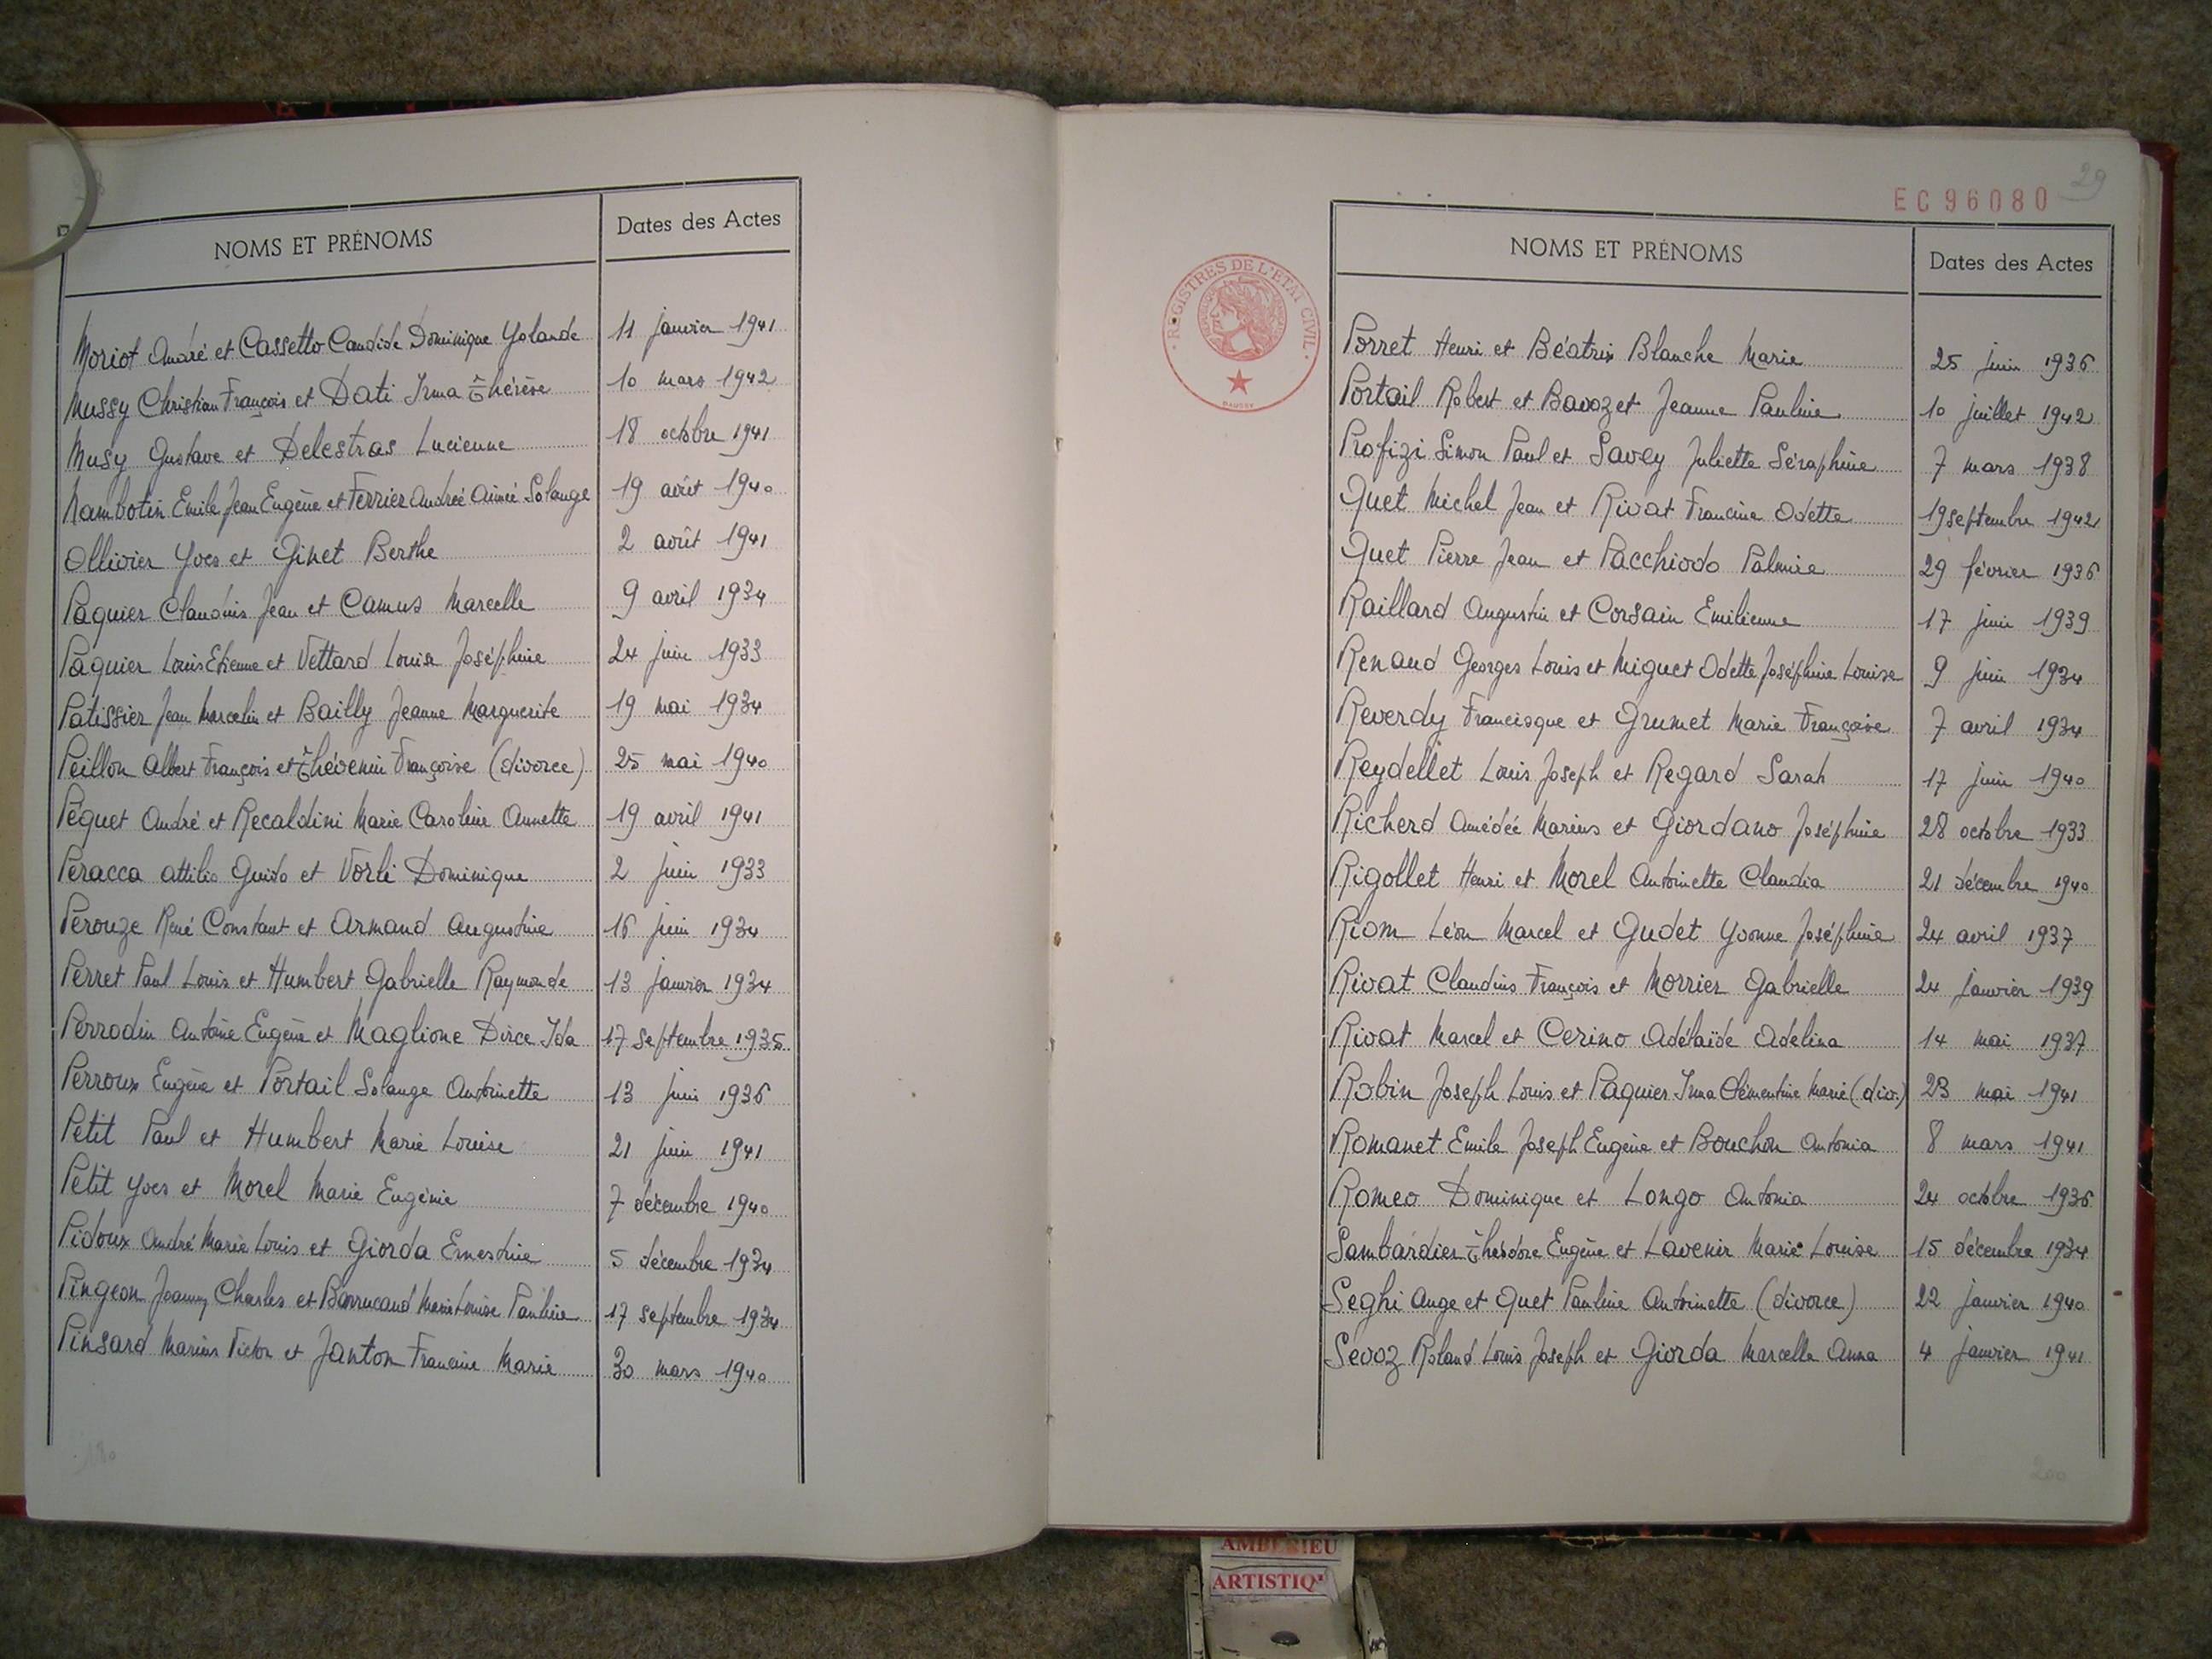 NOMS ET PRÉNOMS Dates des Actes
Moriot André et Cassetto Candide Dominique Yolande 11 janvier 1941
Mussy Christian François et Dati Irma Thérèse 10 mars 1942
Musy Gustave et Delestras Lucienne 18 octobre 1941
Nambotin Emile Jean Eugène et Ferrier Andrée Aimée Solange 19 août 1940
Ollivier Yves et Ginet Berthe 2 août 1941
Paquier Claudius Jean et Camus Marcelle 9 avril 1934
Paquier Louis Etienne et Vettard Louise Joséphine 24 juin 1933
Patissier Jean Marcelin et Bailly Jeanne Marguerite 19 mai 1934
Peillon Albert François et Thévenin Françoise (divorce) 25 mai 1940
Péguet André et Recaldini Marie Caroline Annette 19 avril 1941
Peracca Attilio Guido et Vorli Dominique 2 juin 1933
Perouze René Constant et Armand Augustine 16 juin 1934
Perret Paul Louis et Humbert Gabrielle Raymonde 13 janvier 1934
Perrodin Antoine Eugène et Maglione Dirce Ida 17 septembre 1936
Perroux Eugène et Portail Solange Antoinette 13 juin 1936
Petit Paul et Humbert Marie Louise 21 juin 1941
Petit Yves et Morel Marie Eugénie 7 décembre 1940
Pidoux André Marie Louis et Giorda Ernestine 5 décembre 1934
Pingeon Joanny Charles et Barrucand Marie Louise Pauline 17 septembre 1934
Pinsard Marius Victor et Janton Francine Marie 30 mars 1940
180
29
EC 96080
REGISTRES DE L'ÉTAT CIVIL
NOMS ET PRÉNOMS Dates des Actes
Porret Henri et Béatrix Blanche Marie 25 juin 1936
Portail Robert et Bavozet Jeanne Pauline 10 juillet 1942
Profizi Simon Paul et Savey Juliette Séraphine 7 mars 1938
Quet Michel Jean et Rivat Francine Odette 19 septembre 1942
Quet Pierre Jean et Pacchiodo Palmire 29 février 1936
Raillard Augustin et Corsain Emilienne 17 juin 1939
Renaud Georges Louis et Miguet Odette Joséphine Louise 9 juin 1934
Reverdy Francisque et Grumet Marie Françoise 7 avril 1934
Reydellet Louis Joseph et Regard Sarah 17 juin 1940
Richerd Amédée Marius et Giordano Joséphine 28 octobre 1933
Rigollet Henri et Morel Antoinette Claudia 21 décembre 1940
Riom Léon Marcel et Gudet Yvonne Joséphine 24 avril 1937
Rivat Claudius François et Morrier Gabrielle 24 janvier 1939
Rivat Marcel et Cerino Adélaïde Adelina 14 mai 1937
Robin Joseph Louis et Paquier Irma Clémentine Marie (div.) 23 mai 1941
Romanet Emile Joseph Eugène et Bouchon Antonia 8 mars 1941
Romeo Dominique et Longo Antonia 24 octobre 1936
Sambardier Théodore Eugène et Lavenir Marie Louise 15 décembre 1934
Seghi Ange et Quet Pauline Antoinette (divorce) 22 janvier 1940
Sevoz Roland Louis Joseph et Giorda Marcelle Anna 4 janvier 1941
200
AMBERIEU
ARTISTIQ